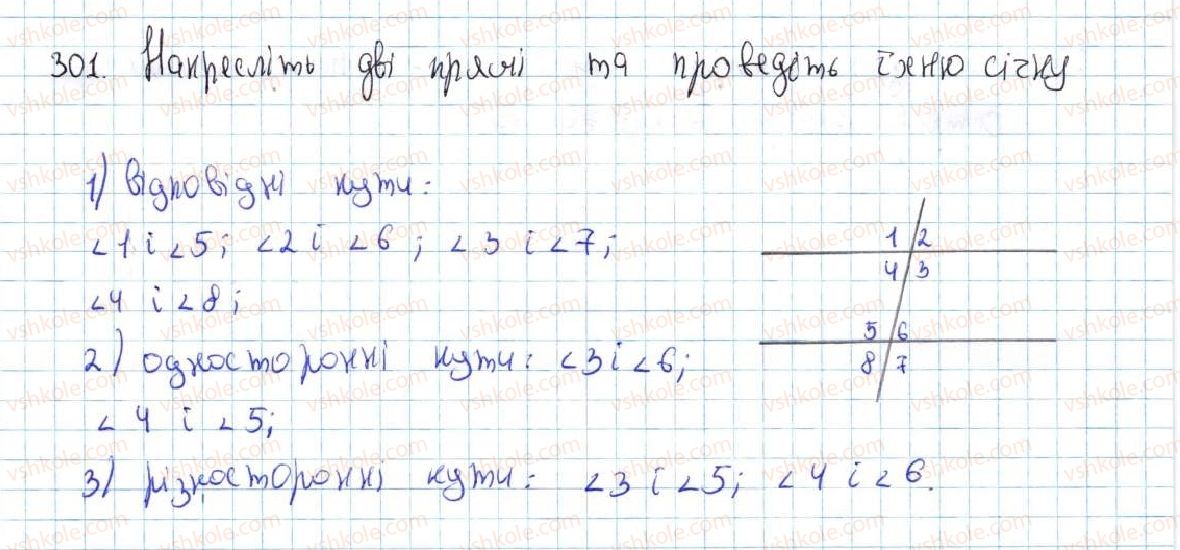 301. Накресліть дві прямі та проведіть їхню січну
1) Відповідні кути:
∠1 і ∠5; ∠2 і ∠6; ∠3 і ∠7;
∠4 і ∠8;
2) односторонні кути: ∠3 і ∠6;
∠4 і ∠5;
3) різносторонні кути: ∠3 і ∠5; ∠4 і ∠6.
1 2
4 3
5 6
8 7
vshkole.com